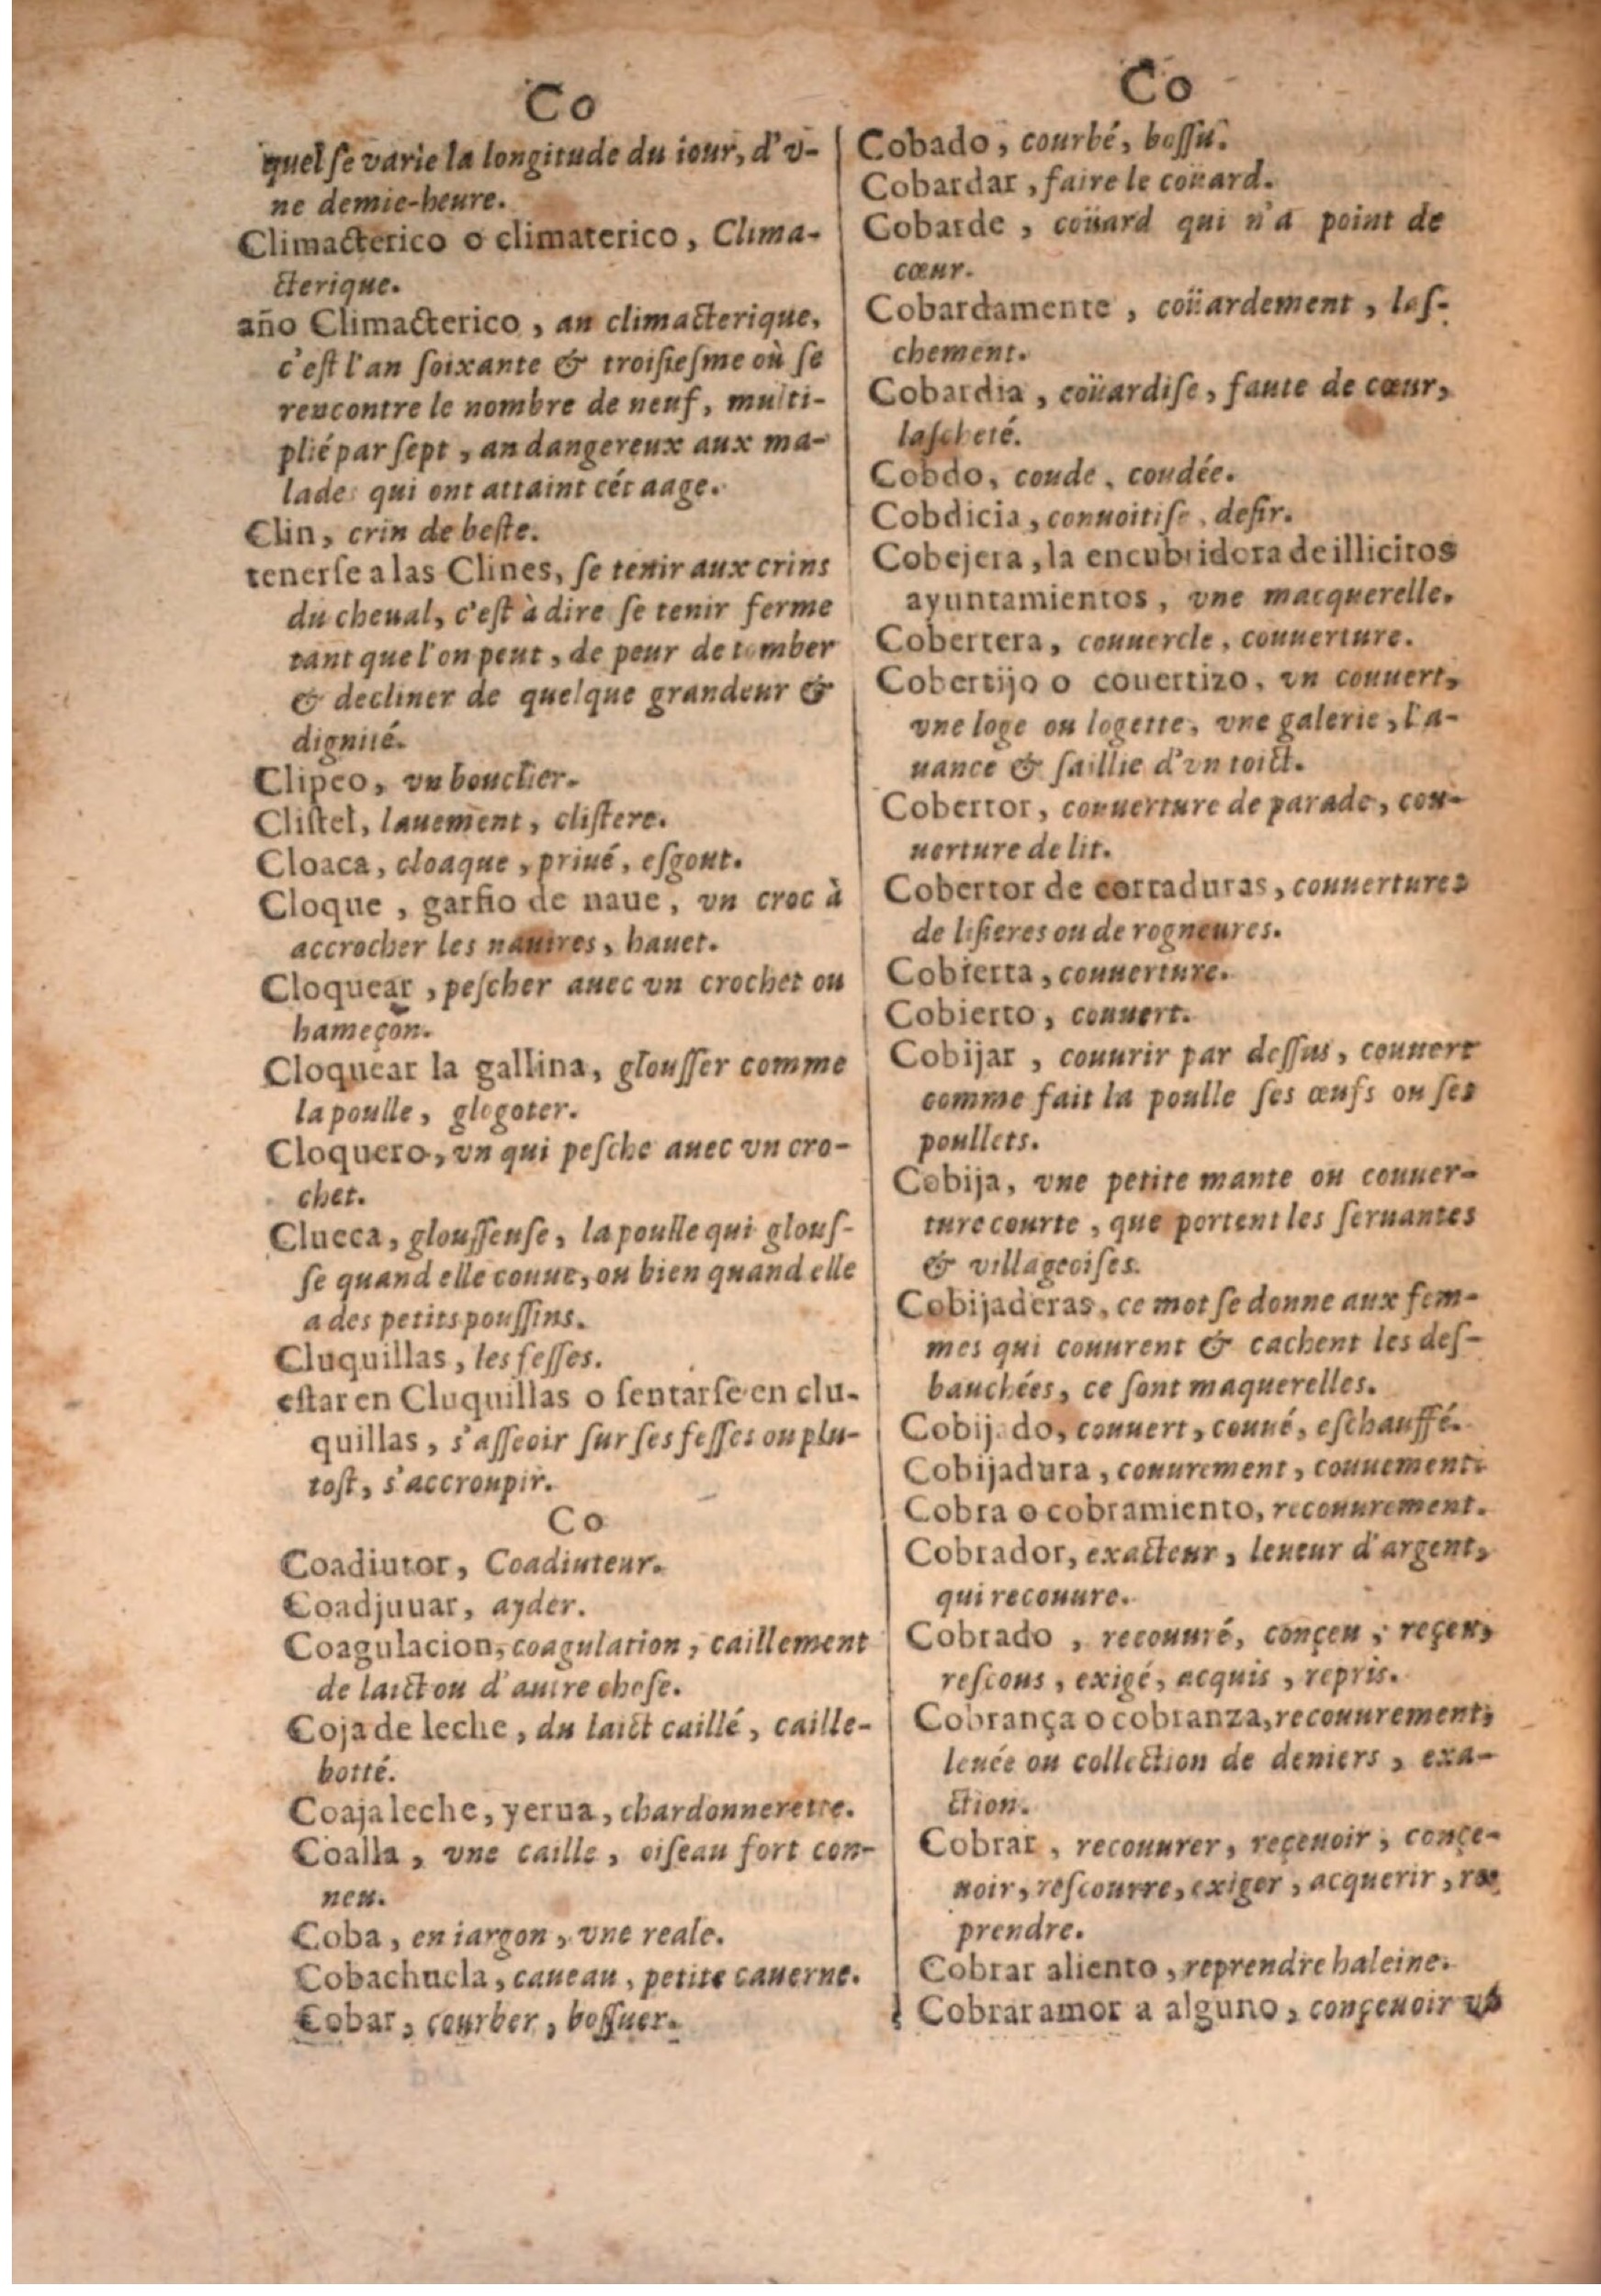 Co
quel se varie la longitude du iour, d'v-
ne demie-heure.
Climacterico o climaterico, Clima-
cterique.
año Climacterico, an climacterique,
c'est l'an soixante & troisiesme où se
rencontre le nombre de neuf, multi-
plié par sept, an dangereux aux ma-
lades qui ont attaint cét aage.
Clin, crin de beste.
tenerse a las Clines, se tenir aux crins
du cheual, c'est à dire se tenir ferme
tant que l'on peut, de peur de tomber
& decliner de quelque grandeur &
dignité.
Clipeo, vn bouclier.
Clistel, lauement, clistere.
Cloaca, cloaque, priué, esgout.
Cloque, garfio de naue, vn croc à
accrocher les nauires, hauet.
Cloquear, pescher auec vn crochet ou
hameçon.
Cloquear la gallina, glousser comme
la poulle, glogoter.
Cloquero, vn qui pesche auec vn cro-
chet.
Clueca, glousseuse, la poulle qui glous-
se quand elle couue, ou bien quand elle
a des petits poussins.
Cluquillas, les fesses.
estar en Cluquillas o sentarse en clu-
quillas, s'asseoir sur ses fesses ou plu-
tost, s'accroupir.
Co
Coadiutor, Coadiuteur.
Coadjuuar, ayder.
Coagulacion, coagulation, caillement
de laict ou d'autre chose.
Coja de leche, du laict caillé, caille-
botté.
Coaja leche, yerua, chardonnerette.
Coalla, vne caille, oiseau fort con-
neu.
Coba, en iargon, vne reale.
Cobachuela, caueau, petite cauerne.
Cobar, courber, bossuer.
Co
Cobado, courbé, bossu.
Cobardar, faire le coüard.
Cobarde, coüard qui n'a point de
cœur.
Cobardamente, coüardement, las-
chement.
Cobardia, coüardise, faute de cœur,
lascheté.
Cobdo, coude, coudée.
Cobdicia, conuoitise, desir.
Cobejera, la encubridora de illicitos
ayuntamientos, vne macquerelle.
Cobertera, couuercle, couuerture.
Cobertijo o couertizo, vn couuert,
vne loge ou logette, vne galerie, l'a-
uance & saillie d'vn toict.
Cobertor, couuerture de parade, cou-
uerture de lit.
Cobertor de cortaduras, couuertures
de lisieres ou de rogneures.
Cobierta, couuerture.
Cobierto, couuert.
Cobijar, couurir par dessus, couuert
comme fait la poulle ses œufs ou ses
poullets.
Cobija, vne petite mante ou couuer-
ture courte, que portent les seruantes
& villageoises.
Cobijaderas, ce mot se donne aux fem-
mes qui couurent & cachent les des-
bauchées, ce sont maquerelles.
Cobijado, couuert, couué, eschauffé.
Cobijadura, couurement, couuement.
Cobra o cobramiento, recouurement.
Cobrador, exacteur, leueur d'argent,
qui recouure.
Cobrado, recouuré, conçeu, reçeu,
rescous, exigé, acquis, repris.
Cobrança o cobranza, recouurement,
leuée ou collection de deniers, exa-
ction.
Cobrar, recouurer, reçeuoir, conçe-
uoir, rescourre, exiger, acquerir, re
prendre.
Cobrar aliento, reprendre haleine.
Cobrar amor a alguno, conçeuoir